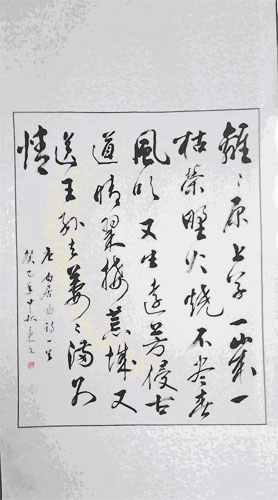 離〻原上草一歲一
枯榮野火燒不盡春
風吹又生遠芳侵古
道晴翠接荒城又
送王孫去萋〻滿別
情
唐白居易詩一首
癸巳年中秋